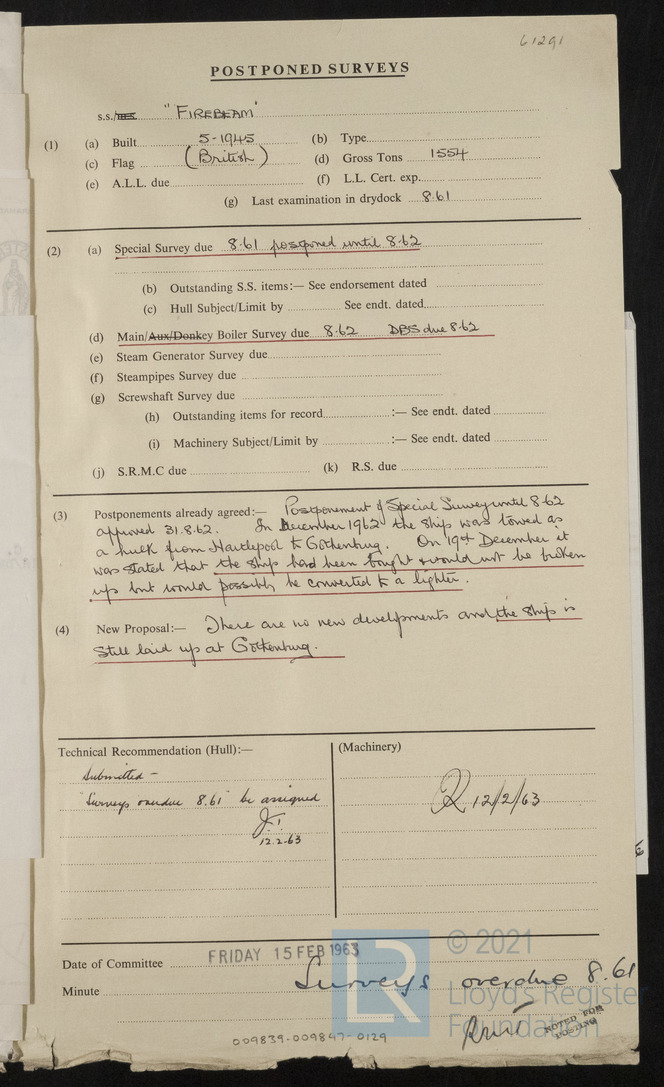 61291
POSTPONED SURVEYS
s.s./m.s. "FIREBEAM"
(1) (a) Built 5-1945 (b) Type
(c) Flag (British) (d) Gross Tons 1554
(e) A.L.L. due (f) L.L. Cert. exp.
(g) Last examination in drydock 8.61
(2) (a) Special Survey due 8.61 postponed until 8.62
(b) Outstanding S.S. items:— See endorsement dated
(c) Hull Subject/Limit by See endt. dated
(d) Main/Aux/Donkey Boiler Survey due 8.62 DBS due 8.62
(e) Steam Generator Survey due
(f) Steampipes Survey due
(g) Screwshaft Survey due
(h) Outstanding items for record :— See endt. dated
(i) Machinery Subject/Limit by :— See endt. dated
(j) S.R.M.C due (k) R.S. due
(3) Postponements already agreed:— Postponement of Special Survey until 8.62
approved 31.8.62. In December 1962 the ship was towed as
a hulk from Hartlepool to Gothenburg. On 19th December it
was stated that the ship had been bought & would not be broken
up but would possibly be converted to a lighter.
(4) New Proposal:— There are no new developments and the ship is
still laid up at Gothenburg.
Technical Recommendation (Hull):—
Submitted -
"Surveys overdue 8.61" be assigned
12.2.63
(Machinery)
12/2/63
Date of Committee FRIDAY 15 FEB 1963
Minute Surveys overdue 8.61
NOTED FOR
POSTING
LR
© 2021
Lloyd's Register
Foundation
009839-009847-0129